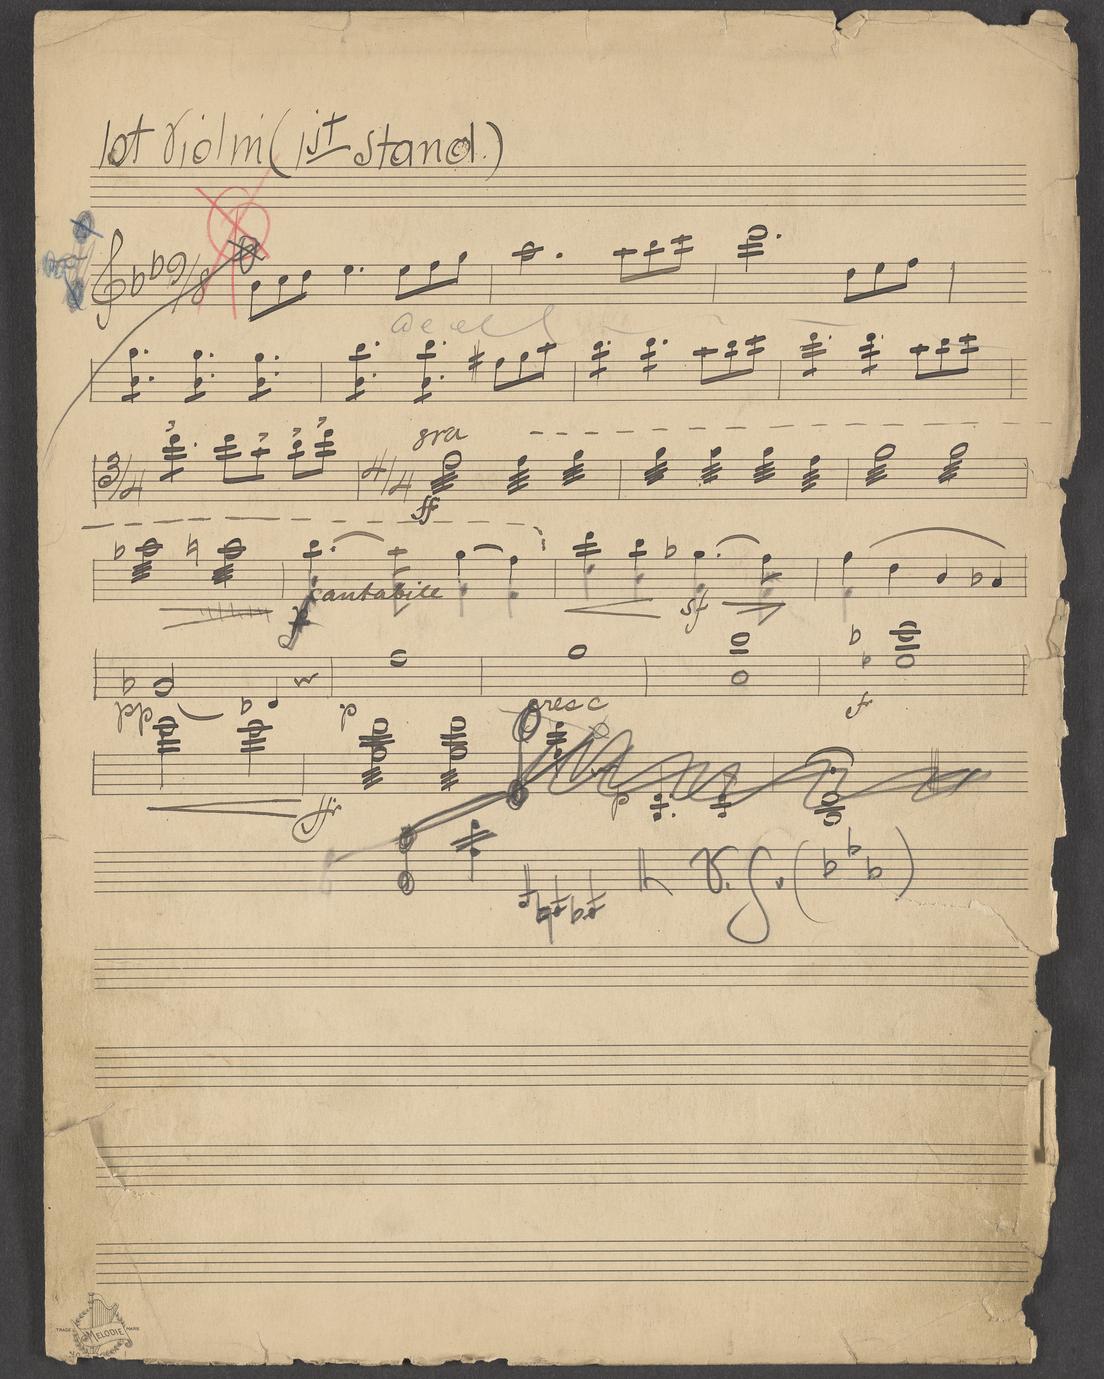 1st Violin (1st stand.)
9/8
accel
3/4 3 3 3 3 4/4 8va
ff
cantabile
sf
cresc
ff
V.S.
TRADE MELODIE MARK